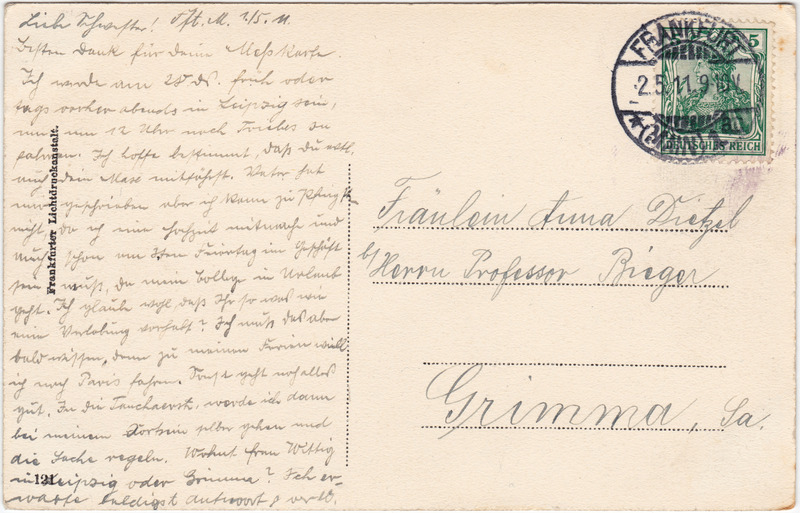 Liebe Schwester! Fft. M. 1/5. 11.
Besten Dank für Deine Messkarte
Ich werde am 28 ds. früh oder
tags vorher abends in Leipzig sein,
um um 12 Uhr nach Triebes zu
fahren. Ich hoffe bestimmt, daß du
auch dein Max mitfährst. Vater hat
mir geschrieben aber ich kann zu
nicht, da ich eine Hochzeit mitmache und
auch schon am 3ten Feiertag im Geschäft
sein muß, da mein College in Urlaub
geht. Ich glaube wohl daß Ihr so was wie
eine Verlobung vorhabt? Ich muß das aber
bald wissen, denn zu meinen Ferien will
ich nach Paris fahren. Sonst geht noch alles
gut. In die Tauchaerstr. werde ich dann
bei meinem Dortsein selber gehen und
die Sache regeln. Wohnt Frau Wittig
in Leipzig oder Grimma? Ich er-
warte baldigst Antwort
Frankfurter Lichtdruckanstalt.
131
FRANKFURT
2.5.11.9
(MAIN) 1
5
DEUTSCHES REICH
Fräulein Anna Dietzel
b/Herrn Professor Bieger
Grimma, Sa.